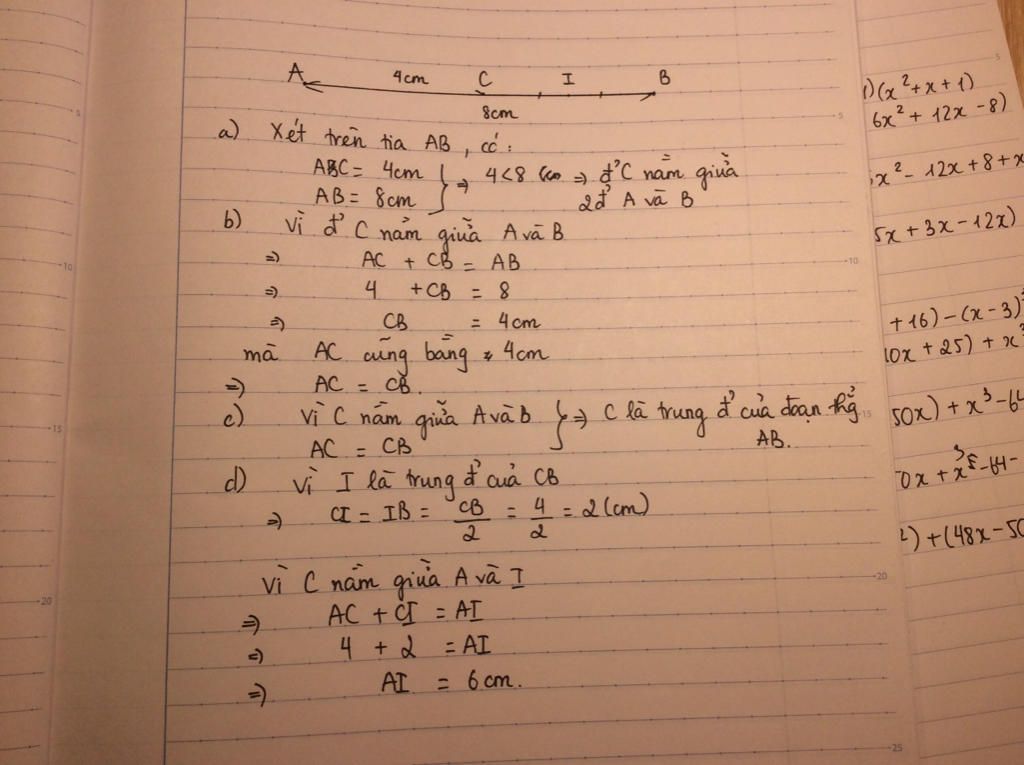 A 4cm C I B
8cm
a) Xét trên tia AB, có:
AC = 4cm
AB = 8cm } => 4<8 => đ' C nằm giữa
2đ' A và B
b) Vì đ' C nằm giữa A và B
=> AC + CB = AB
=> 4 + CB = 8
=> CB = 4cm
mà AC cũng bằng 4cm
=> AC = CB.
c) Vì C nằm giữa A và B
AC = CB } => C là trung đ' của đoạn thg
AB.
d) Vì I là trung đ' của CB
=> CI = IB = CB/2 = 4/2 = 2(cm)
Vì C nằm giữa A và I
=> AC + CI = AI
=> 4 + 2 = AI
=> AI = 6cm.
)(x²+x+1)
6x² + 12x - 8)
x² - 12x + 8 + x
5x + 3x - 12x)
+ 16) - (x - 3)
0x + 25) + x
50x) + x³ - 64
0x + x³ - 64 -
²) + (48x - 50
5
10
15
20
5
10
15
20
25